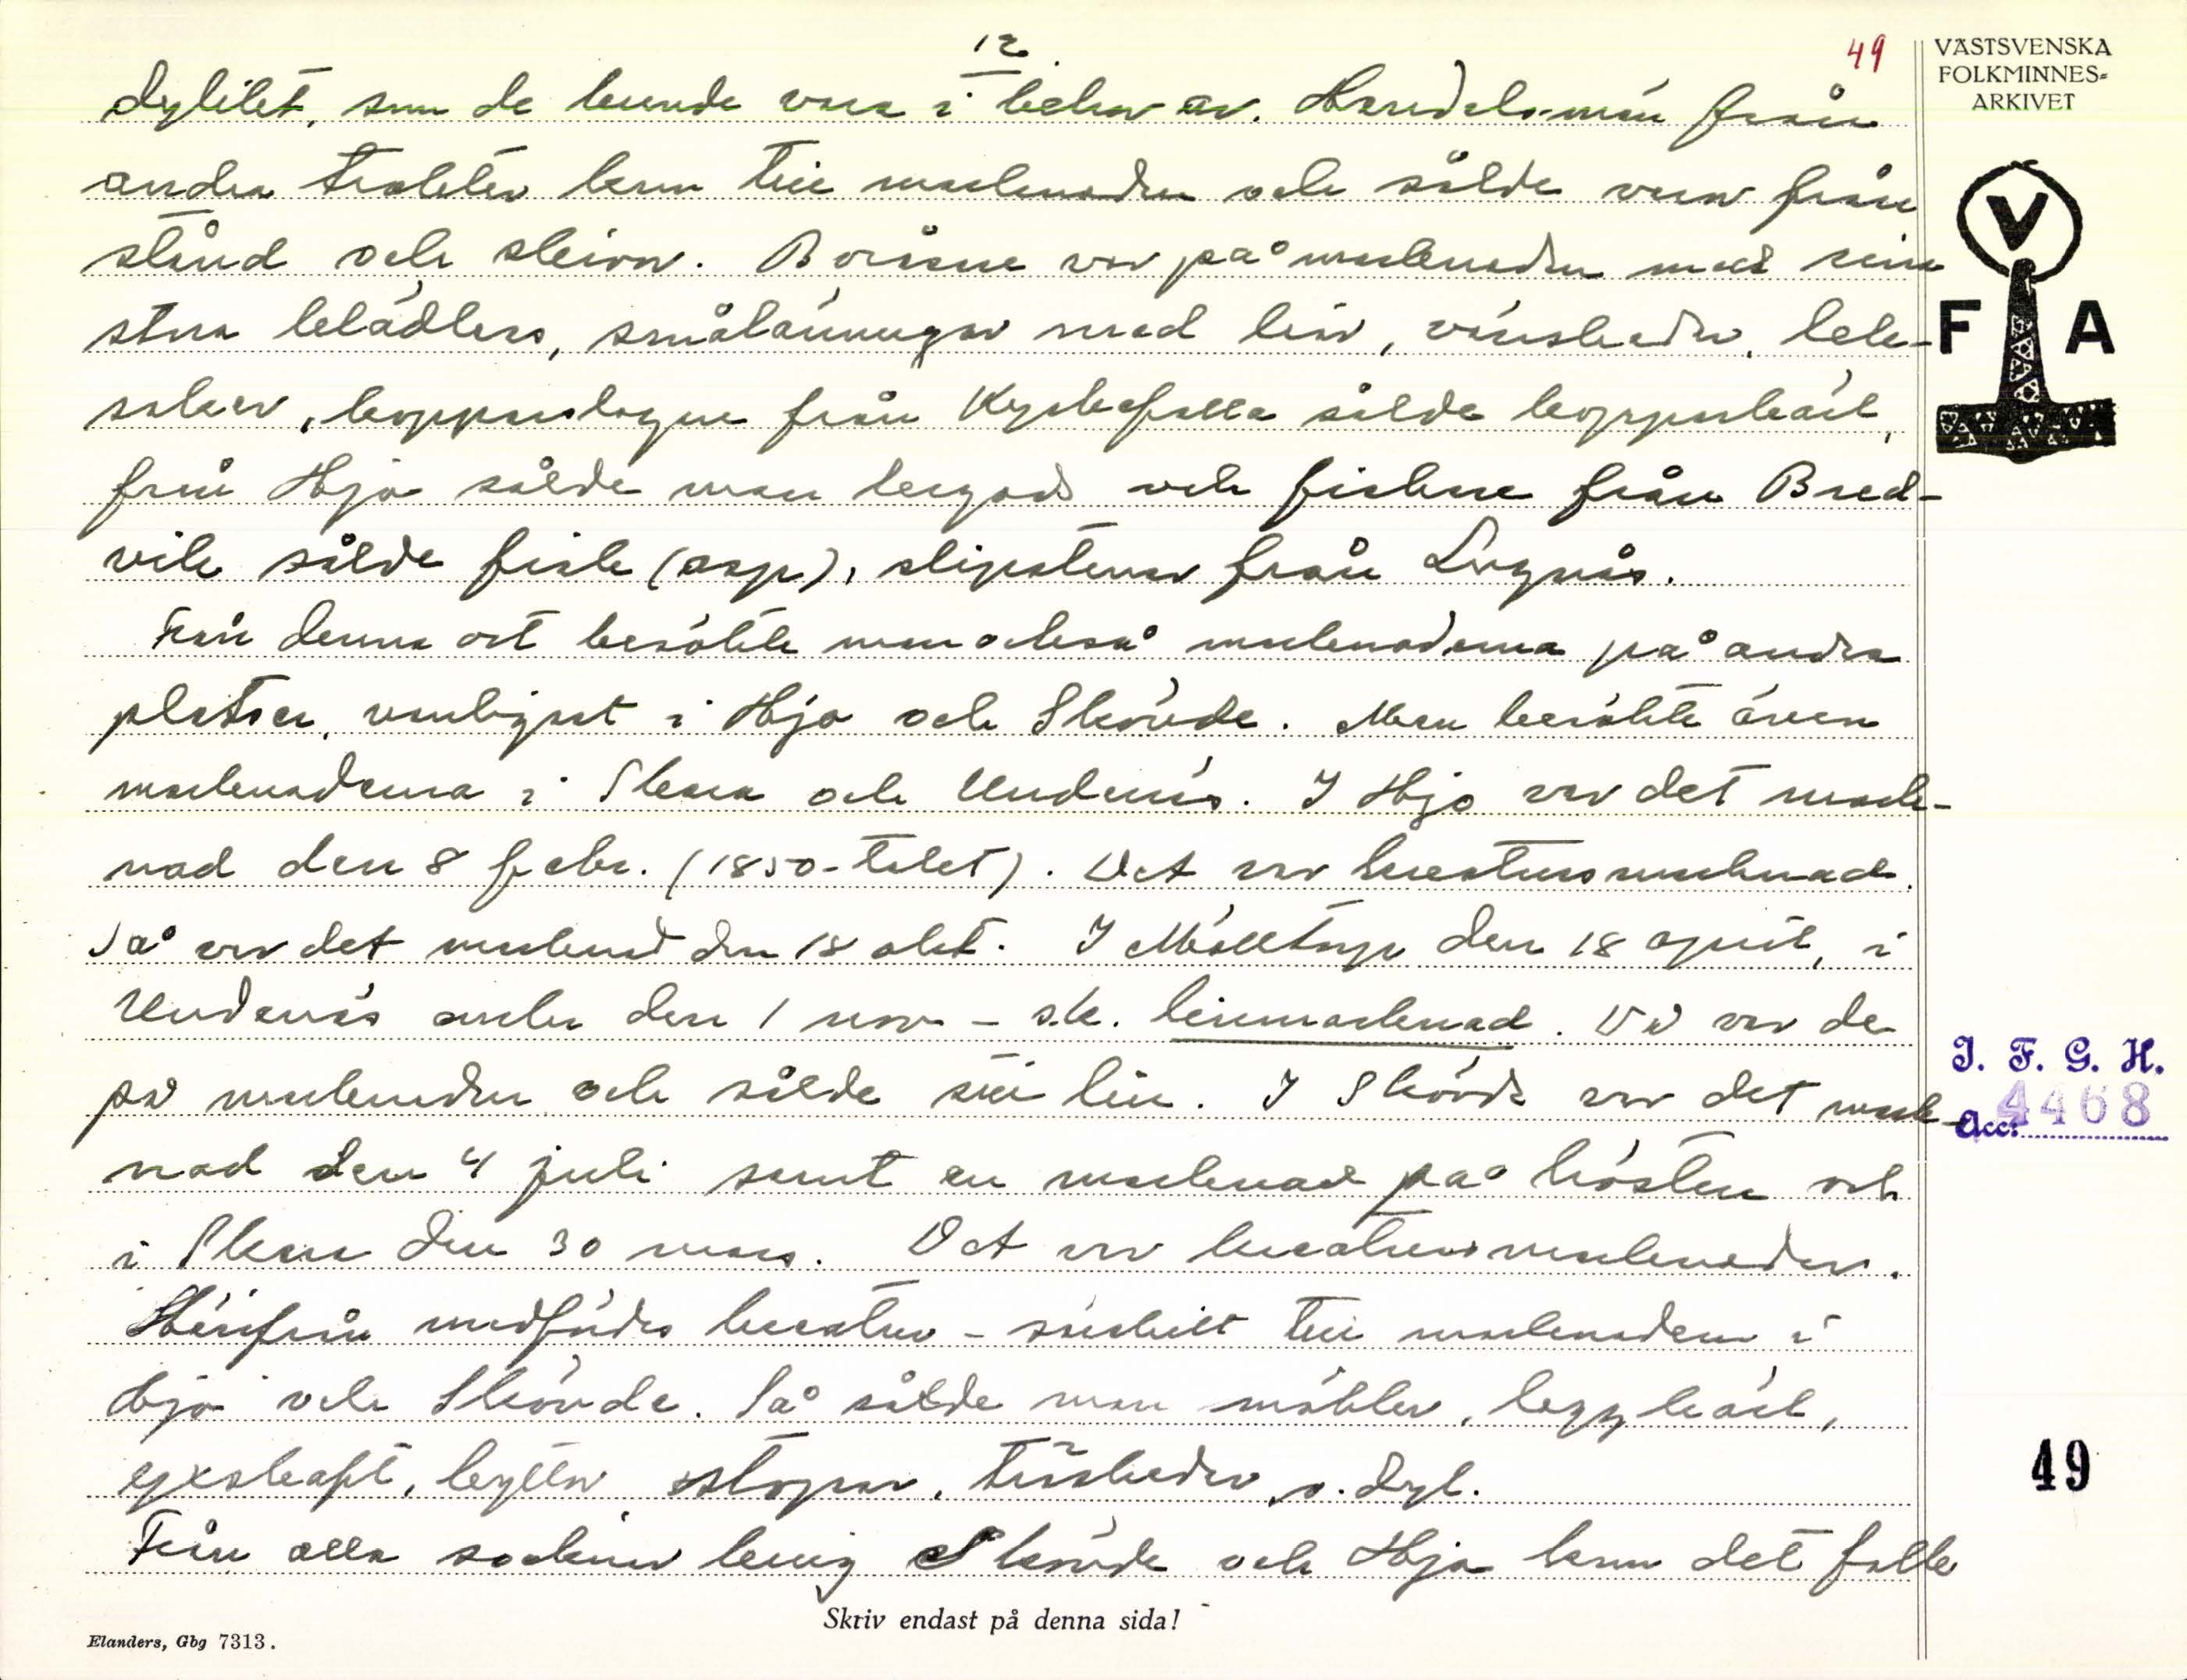 12
49
VÄSTSVENSKA
FOLKMINNES-
ARKIVET
dylikt, som de kunde vara i behov av. Handelsmän från
andra trakter kom till marknaden och sålde varor från
stånd och skivor. Boråsare var på marknaden med sina
stora klädlårs, smålänningar med lin, vävskedar, lek-
saker, kopparslagare från Kyrkefalla sålde kopparkärl,
från Hjo sålde man lergods och fiskare från Bred-
vik sålde fisk (asp), slipstenar från Lugnås.
Från denna ort besökte man också marknaderna på andra
platser, vanligast i Hjo och Skövde. Man besökte även
marknaderna i Skara och Undenäs. I Hjo var det mark-
nad den 8 febr. (1850-talet). Det var kreatursmarknad.
Så var det marknad den 18 okt. I Mölltorp den 18 april, i
Undenäs den 1 nov – s.k. linmarknad. Då var de
på marknaden och sålde sin lin. I Skövde var det mark-
nad den 4 juli samt en marknad på hösten och
i Skara den 30 mars. Det var kreatursmarknader.
Härifrån medfördes kreatur – särskilt till marknaden i
Hjo och Skövde. Så sålde man möbler, laggkärl,
yxskaft, byttor, stopar, träskedar o. dyl.
Från alla socknar kring Skövde och Hjo kom det folk
V
F A
I. F. G. H.
Acc. 4468
49
Skriv endast på denna sida!
Elanders, Gbg 7313.